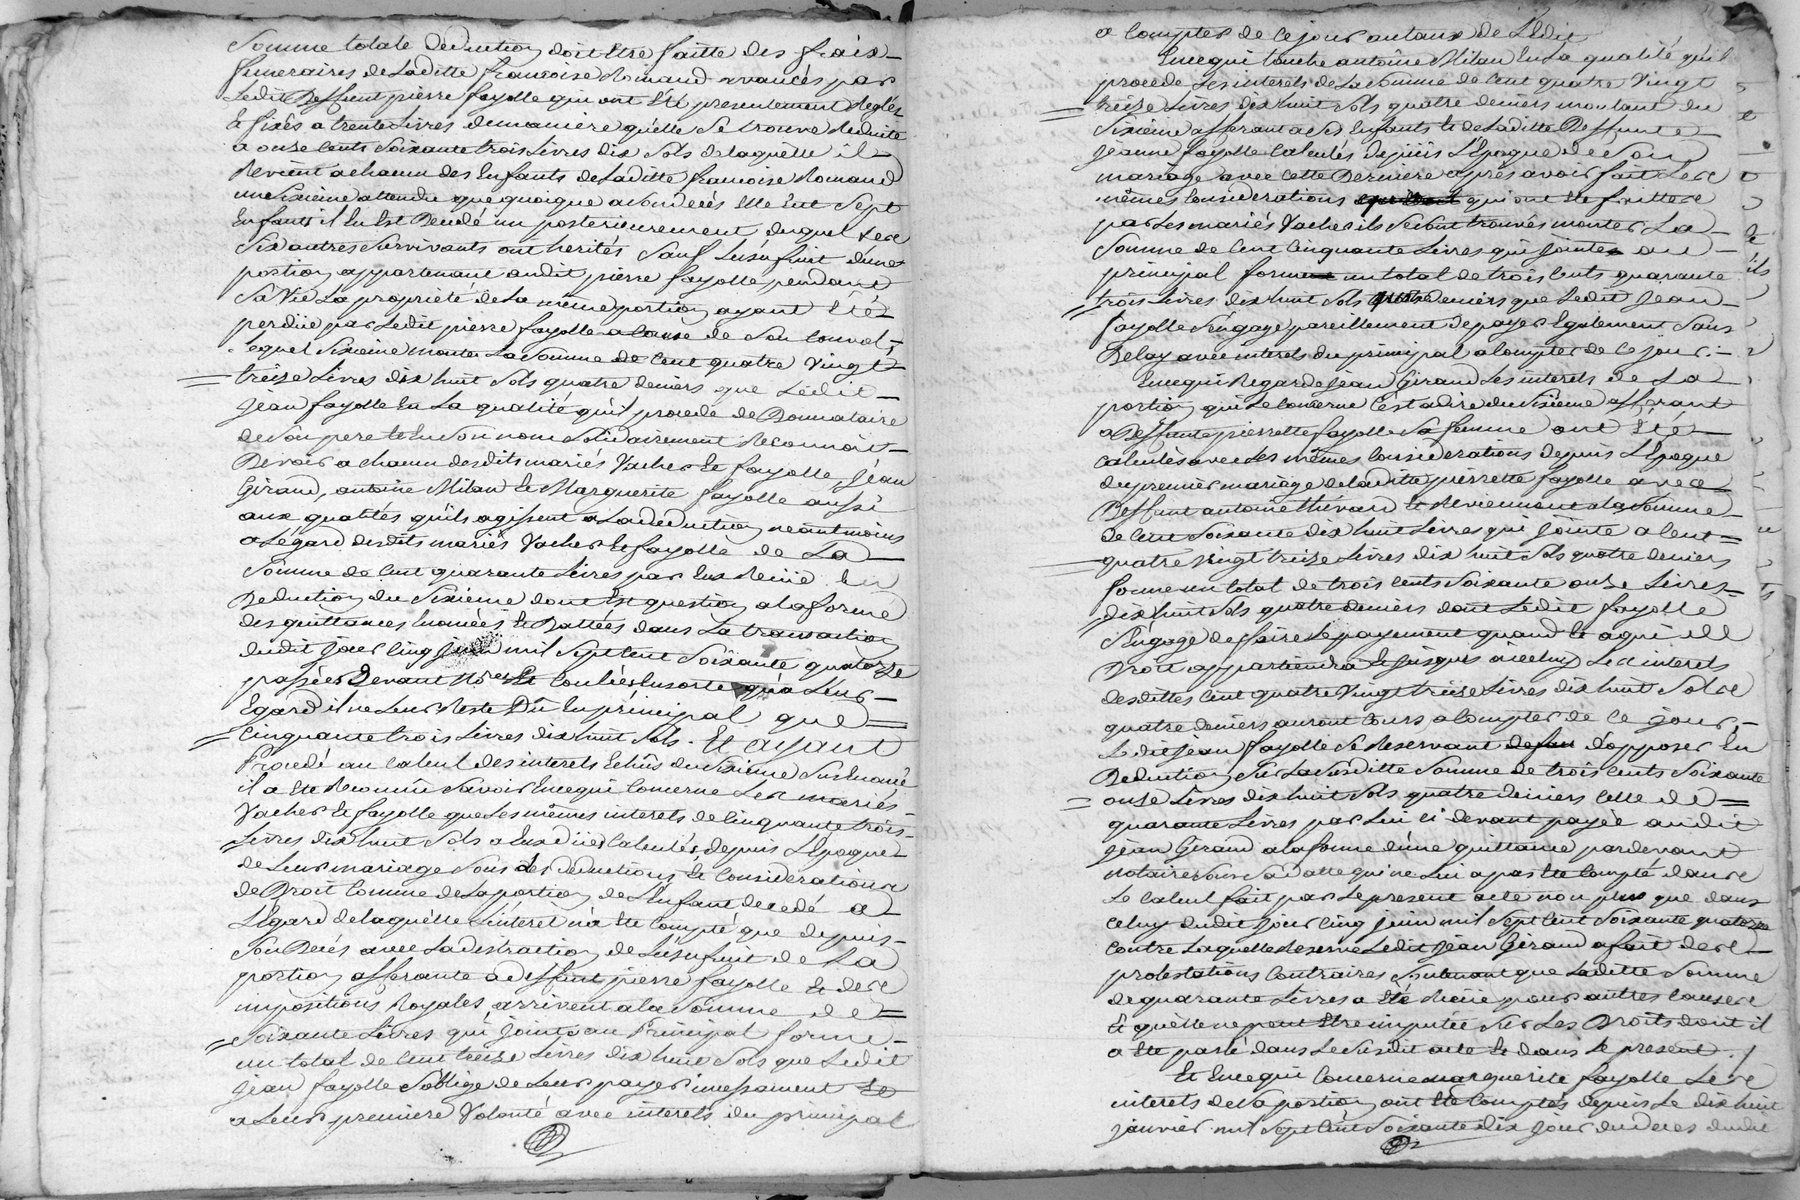 Somme totale deduction doit Etre faitte des frais
funeraires de Laditte francoise Romand avancés par
Ledit Deffunt pierre fayolle qui ont Eté presentement Reglés
Et fixés a trente Livres demanière qu'elle Se trouve Reduite
a onze cents Soixante trois Livres dix Sols de laquelle il
Revient a chacun des Enfants de Laditte francoise Romand
un Sixième attendu que quoique a Son decès Elle Eut Sept
Enfants il En Est Decedé un posterieurement duquel Les
Six autres Survivants ont herités Sauf Lusufruit dune
portion appartenant audit pierre fayolle pendant
Sa Vie La propriété de La même portion ayant Eté
perdüe par Ledit pierre fayolle a cause de Son convol,
lequel Sixième monte a La Somme de Cent quatre Vingt
treize Livres dix huit Sols quatre deniers que Ledit
Jean fayolle En La qualité qu'il procede de Donnataire
de Son pere Et En Son nom Solidairement Reconnoit
Devoir a chacun desdits mariés Vacher Et fayolle, Jean
Giraud, antoine Milan Et Marguerite fayolle aussi
aux qualités qu'ils agissent a La deduction neantmoins
a Légard desdits mariés Vacher Et fayolle de La
Somme de Cent quarante Livres par Eux Reçüe En
Deduction du Sixième dont Est question a la forme
des quittances Enoncées Et Dattées dans La transaction
dudit Jour Cinq Juin mil Sept Cent Soixante quatorze
passée Devant Nores En sorte qu'a Leur
Egard il ne Leur Reste Dü En principal que
Cinquante trois Livres dix huit Sols. Et ayant
Procedé au Calcul des interets Echus du Sixième Susenoncé
il a Eté Reconnu Savoir En ce qui Concerne Les mariés
Vacher Et fayolle que Les mêmes interets de Cinquante trois
Livres dix huit Sols a Eux dües Calculés depuis L'Epoque
de Leur mariage Sous Les deductions Et Considerations
de Droit Comme de La portion de L'Enfant decedé a
L'Egard de laquelle L'interet n'a Eté Compté que depuis
Son Decés avec La distraction de L'usufruit de La
portion afferante a deffunt pierre fayolle Et des
impositions Royales arrivent a la Somme de
Soixante Livres qui Jointe au Principal forme
un total de Cent treize Livres dix huit Sols que Ledit
Jean fayolle S'oblige de Leur payer incessament Et
a Leur premiere Volonté avec interets du principal
a compter de Ce jour au taux de L'Edit
En ce qui touche antoine Milan En La qualité qu'il
procede Les interets de La Somme de Cent quatre Vingt
treize Livres dix huit Sols quatre deniers montant du
Sixième afferant a Ses Enfants Et de Laditte Deffunte
Jeanne fayolle Calculés depuis L'Epoque de Son
mariage avec cette Derniere après avoir fait Les
mêmes Considerations qui ont Eté faittes
par Les mariés Vacher ils Se Sont trouvés monter La
Somme de Cent Cinquante Livres qui Jointe au
principal forme un total de trois Cents quarante
trois Livres dix huit Sols quatre deniers que Ledit Jean
fayolle S'engage pareillement de payer Egalement Sans
Delay avec interets du principal a Compter de Ce jour.
En ce qui Regarde Jean Giraud Les interets de La
portion qui Le Concerne C'est a dire du Sixième afferant
a Deffunte pierrette fayolle Sa femme ont Eté
Calculés avec Les mêmes Considerations depuis L'Epoque
du premier mariage de laditte pierrette fayolle avec
Deffunt antoine thévard Et Reviennent a la Somme
de Cent Soixante dix huit Livres qui Jointe a Cent
quatre Vingt treize Livres dix huit Sols quatre deniers
forme un total de trois Cents Soixante onze Livres
dix huit Sols quatre deniers dont Ledit fayolle
S'Engage de faire Le payement quand Et a qui il
Droit appartiendra Et Jusques a icelluy Les interets
desdittes Cent quatre Vingt treize Livres dix huit Sols
quatre deniers auront Cours a Compter de Ce jour,
Ledit Jean fayolle Se Reservant d'opposer En
Deduction Sur La Susditte Somme de trois Cents Soixante
onze Livres dix huit Sols quatre deniers Celle de
quarante Livres par Lui Ci devant payée audit
Jean Giraud a la forme d'une quittance pardevant
notaire Sous Sa datte qui ne Lui a pas Eté Compté dans
Le Calcul fait par Le present acte non plus que dans
Celuy dudit Jour Cinq Juin mil Sept Cent Soixante quatorze
Contre Laquelle Reserve Ledit Jean Giraud a fait des
protestations Contraires Soutenant que Laditte Somme
de quarante Livres a Eté Reçüe pour autres Causes
Et quelle ne peut Etre imputée Sur Les Droits dont il
a Eté parlé dans Le Susdit acte Et dans Le present. /
Et En ce qui Concerne marguerite fayolle Les
interets de Sa portion ont Eté Comptés depuis Le dix huit
Janvier mil Sept Cent Soixante dix Jour du deces dudit